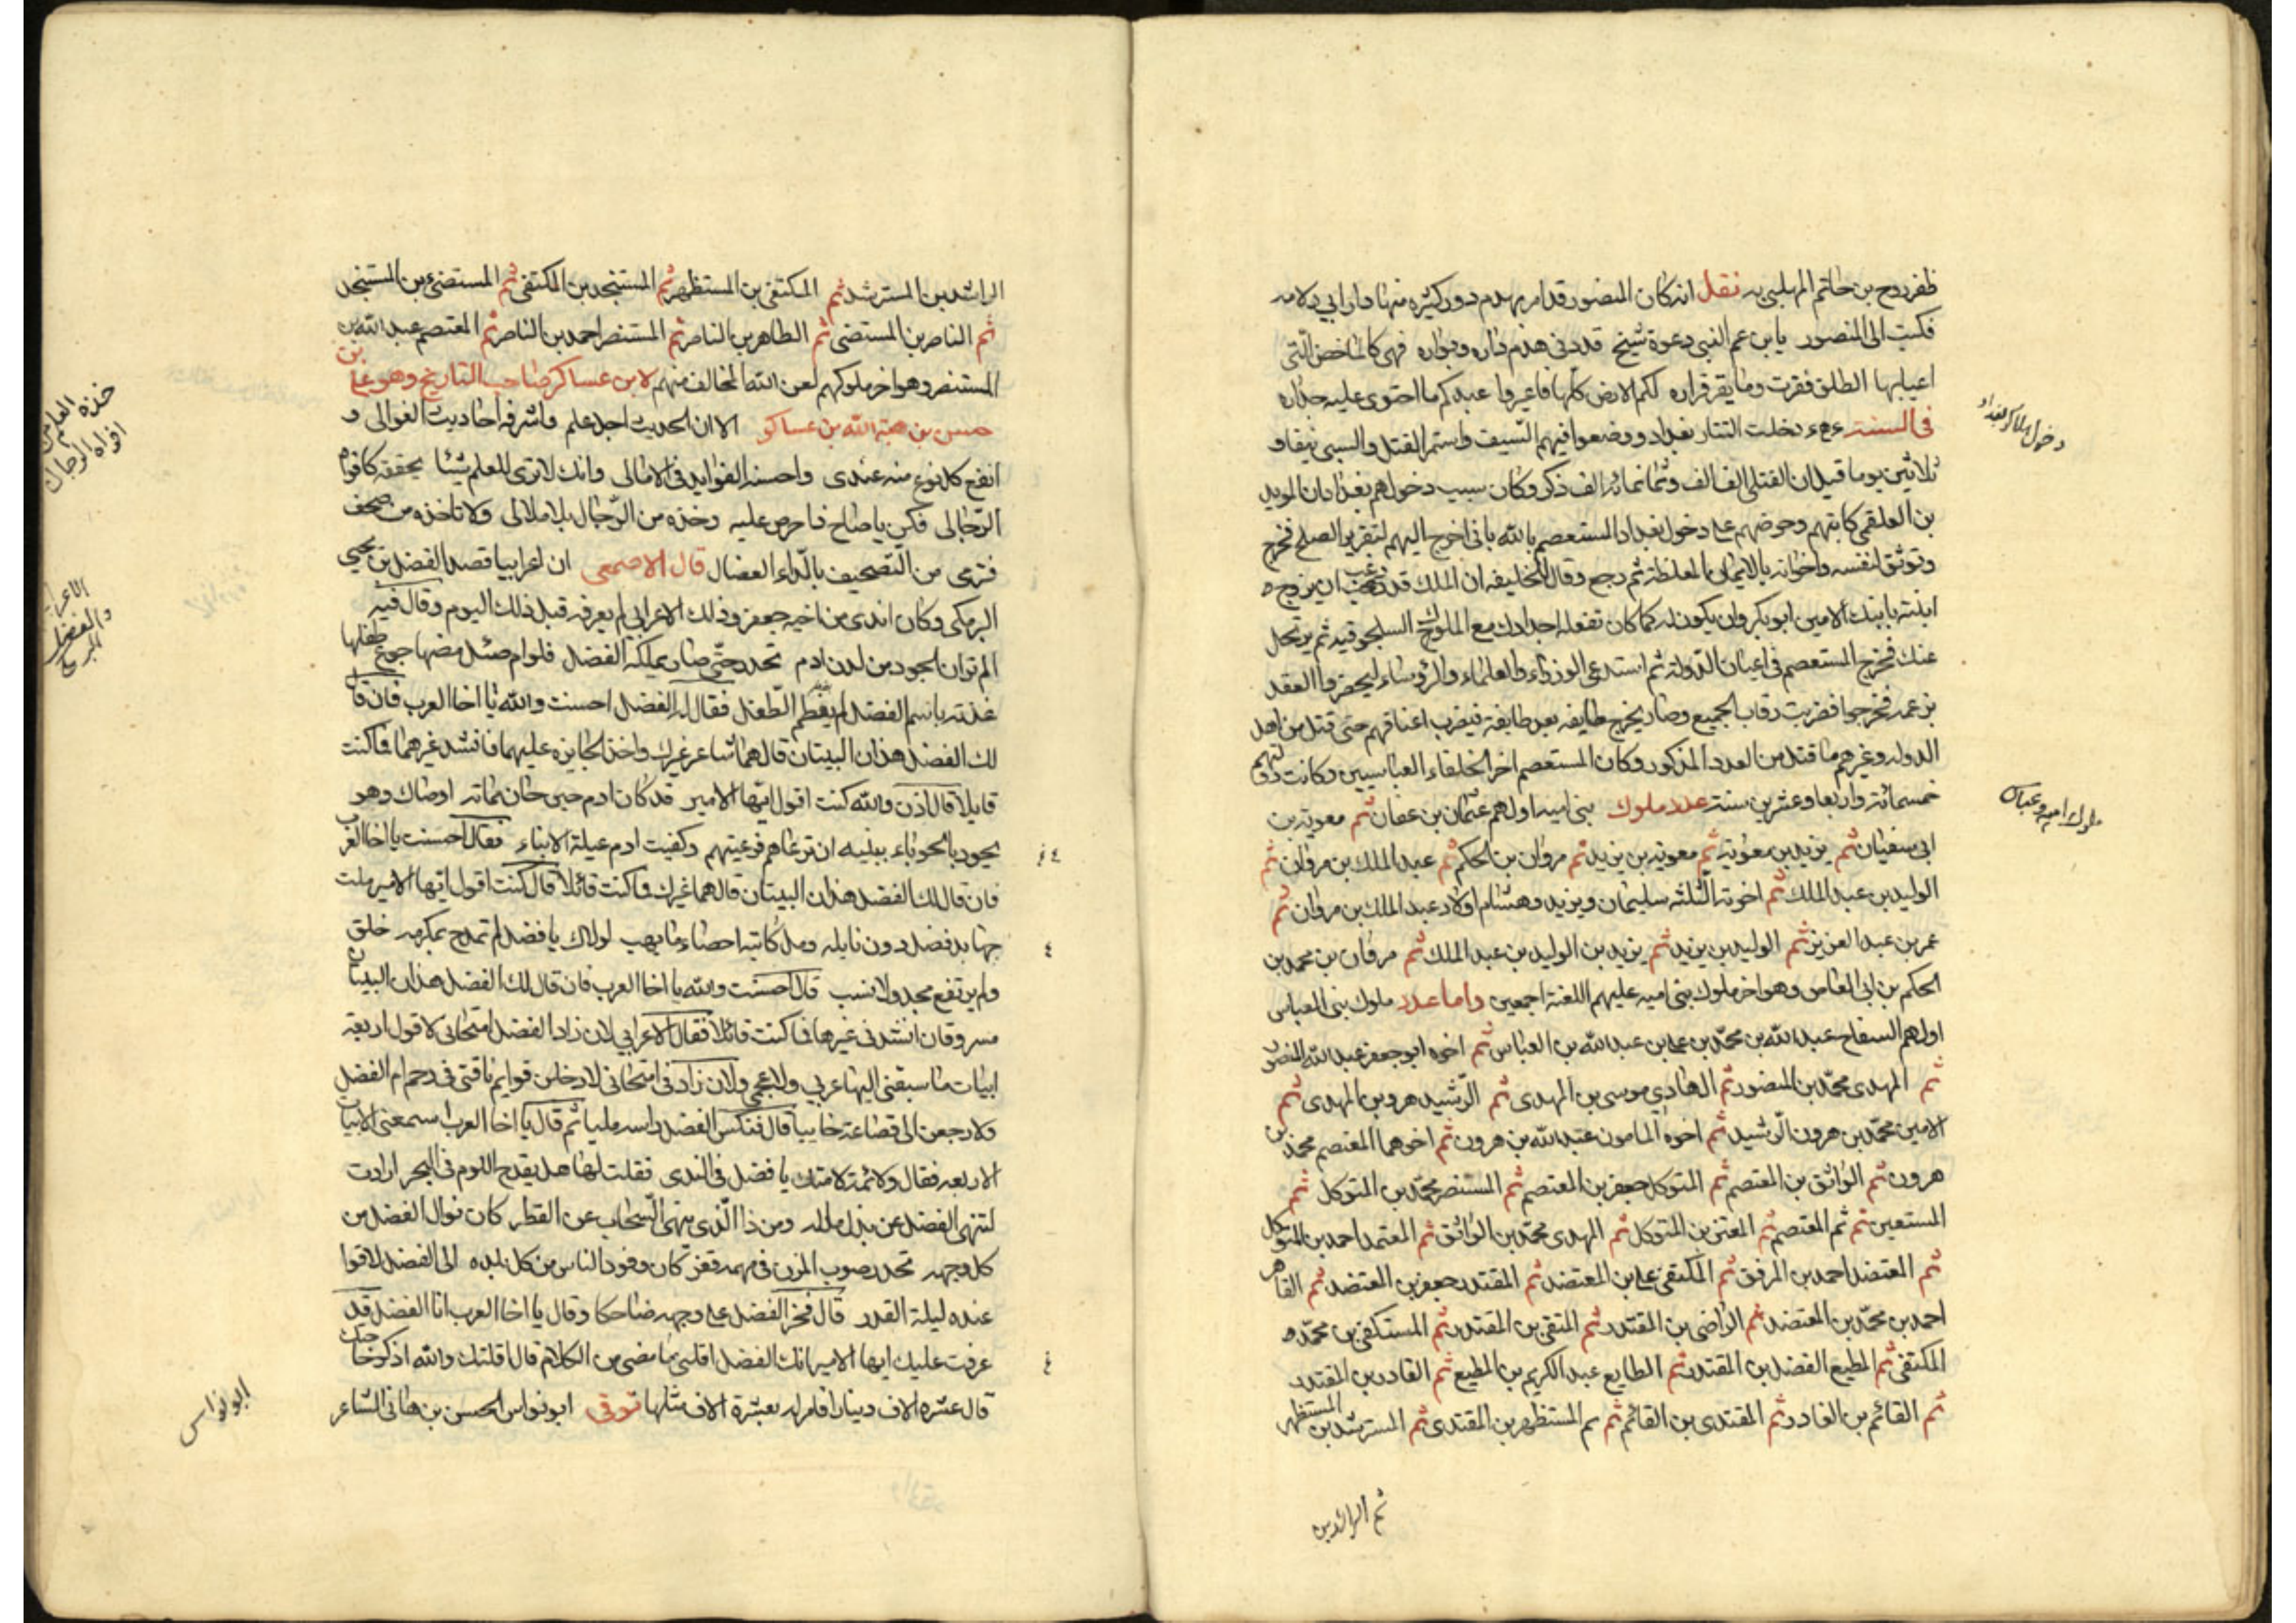 ظفر روح بن حاتم المهلبي به نقل انه كان المنصور قد امر بهدم دور كثيره منها دار ابي دلامه
فكتب الى المنصور يا بن عم النبي دعوة شيخ قد دنى هدم داره وبواره فهى كالماخض التى
اعيابها الطلق فقرت وما يقر قراره لكم الارض كلها فاعيروا عبدكم ما احتوى عليه جداره
دخول هلاكو بغداد
فى السنت دخلت التتار بغداد ووضعوا فيهم السيف واستمر القتل والسبى نيفا و
ثلاثين يوما قيل ان القتلى الف الف وثمانمائه الف ذكر وكان سبب دخولهم بغداد ان المويد
بن العلقمى كاتبهم وحرضهم على دخول بغداد المستعصم بالله بانى اخرج اليهم لتقرير الصلح فخرج
وتوثق لنفسه واخوانه بالايمان المغلظة ثم رجع وقال للخليفه ان الملك قد رغب ان يزوج
ابنته بابنك الامين ابو بكر وان يكون له كما كان تفعله اجدادك مع الملوك السلجوقيه ثم يرتحل
عنك فخرج المستعصم فى اعيان الدولة ثم استدعى الوزراء والعلماء والرؤساء ليحضروا العقد
بزعمه فخرجوا فضربت رقاب الجميع وصار يخرج طايفه بعد طايفة فيضرب اعناقهم حتى قتل من اهل
الدوله وغيرهم ما قتل من العدد المذكور وكان المستعصم اخر الخلفاء العباسيين وكانت دولتهم
ملوك اميه وعباس
خمسمائة واربعا وعشرين سنة عدد ملوك بنى اميه اولهم عثمان بن عفان ثم معوية بن
ابى سفيان ثم يزيد بن معوية ثم معوية بن يزيد ثم مروان بن الحكم ثم عبد الملك بن مروان ثم
الوليد بن عبد الملك ثم اخوته الثلثه سليمان ويزيد وهشام اولاد عبد الملك بن مروان ثم
عمر بن عبد العزيز ثم الوليد بن يزيد ثم يزيد بن الوليد بن عبد الملك ثم مروان بن محمد بن
الحكم بن ابى العاص وهو اخر ملوك بنى اميه عليهم اللعنة اجمعين واما عدد ملوك بنى العباس
اولهم السفاح عبد الله بن محمد بن على بن عبد الله بن العباس ثم اخوه ابو جعفر عبد الله المنصور
ثم المهدى محمد بن المنصور ثم الهادي موسى بن المهدى ثم الرشيد هرون بن المهدى ثم
الامين محمد بن هرون الرشيد ثم اخوه المامون عبد الله بن هرون ثم اخوهما المعتصم محمد بن
هرون ثم الواثق بن المعتصم ثم المتوكل جعفر بن المعتصم ثم المستنصر محمد بن المتوكل ثم
المستعين ثم ثم المعتصم ثم المعتز بن المتوكل ثم المهدى محمد بن الواثق ثم المعتمد احمد بن المتوكل
ثم المعتضد احمد بن المرفق ثم المكتفى على بن المعتضد ثم المقتدر جعفر بن المعتضد ثم القاهر
احمد بن محمد بن المعتضد ثم الراضى بن المقتدر ثم المتقى بن المقتدر ثم المستكفى بن محمد
المكتفى ثم المطيع الفضل بن المقتدر ثم الطايع عبد الكريم بن المطيع ثم القادر بن المقتدر
ثم القائم بن القادر ثم المقتدى بن القائم ثم ثم المستظهر بن المقتدى ثم المسترشد بن المستظهر
ثم الراشد بن
الراشد بن المسترشد ثم المكتفى بن المستظهر ثم المستنجد بن المكتفى ثم المستضئ بن المستنجد
ثم الناصر بن المستضى ثم الطاهر بن الناصر ثم المستنصر احمد بن الناصر ثم المعتصم عبد الله بن
المستنصر وهو اخر ملوكهم لعن الله المخالف منهم لابن عساكر صاحب التاريخ وهو على بن
خذه العلم من افواه الرجال
حسن بن هبة الله بن عساكر الا ان الحديث اجل علم واشرفه احاديث الغوالى و
انفع كل نوع منه عندى واحسنه الفوايد فى الامالى وانك لا ترى للعلم شيئا يحققه كافواه
الرجالى فكن يا صاح ذا حرص عليه وخذه من الرجال بلا ملالى ولا تاخذه من صحف
فترمى من التصحيف بالداء العضال قال الاصمعى ان اعرابيا قصد الفضل بن يحيى
الاعرابي والفضل البرمكي
البرمكى وكان اندى من اخيه جعفر وذلك الاعرابى لم يعرفه قبل ذلك اليوم وقال فيه
الم تر ان الجود من لدن ادم تحدر حتى صار يملكه الفضل فلو ام طفل مضها جوع طفلها
غذته باسم الفضل لم يفطم الطفل فقال له الفضل احسنت والله يا اخا العرب فان قال
لك الفضل هذان البيتان قالهما شاعر غيرك واخذ الجايزه عليهما فانشد غيرهما فما كنت
قايلا قال اذن والله كنت اقول ايها الامير قد كان ادم حين حان مماته اوصاك وهو
يجود بالحوباء ببنيه ان ترعاهم فرعيتهم وكفيت ادم عيلة الابناء فقال احسنت يا اخا العرب
فان قال لك الفضل هذان البيتان قالهما غيرك فما كنت قائلا قال كنت اقول ايها الامير ملت
جهابذ فضل دون نايله ومل كاتبه احصاء ما يهب لولاك يا فضل لم تمدح بمكرمه خلق
ولم يرتفع مجد ولا نسب قال احسنت والله يا اخا العرب فان قال لك الفضل هذان البيتان
مسروقان انشدنى غيرها فما كنت قائلا فقال الاعرابى لان زاد الفضل امتحانى لاقول اربعة
ابيات ما سبقنى اليها عربى ولا عجمى ولان زاد فى امتحانى لادخلن قوايم ناقتى فى رحم ام الفضل
ولارجعن الى قضاعة خايبا قال فنكس الفضل راسه مليا ثم قال يا اخا العرب اسمعنى الابيات
الاربعه فقال ولائمة لامتك يا فضل فى الندى فقلت لها هل يقدح اللوم فى البحر ارادت
لتنهى الفضل عن بذل ماله ومن ذا الذى ينهى السحاب عن القطر كان نوال الفضل من
كل وجهه تحدر صوب المزن فى مهمه قفز كان وفود الناس من كل بلده الى الفضل لاقوا
عنده ليلة القدر قال فخر الفضل على وجهه ضاحكا وقال يا اخا العرب انا الفضل قد
عرفت عليك ايها الامير انك الفضل اقلنى ما مضى من الكلام قال اقلتك والله اذكر حاجتك
قال عشره الاف دينار فامر له بعشرة الاف مثلها توفى ابو نواس الحسن بن هانى الشاعر
ابو نواس